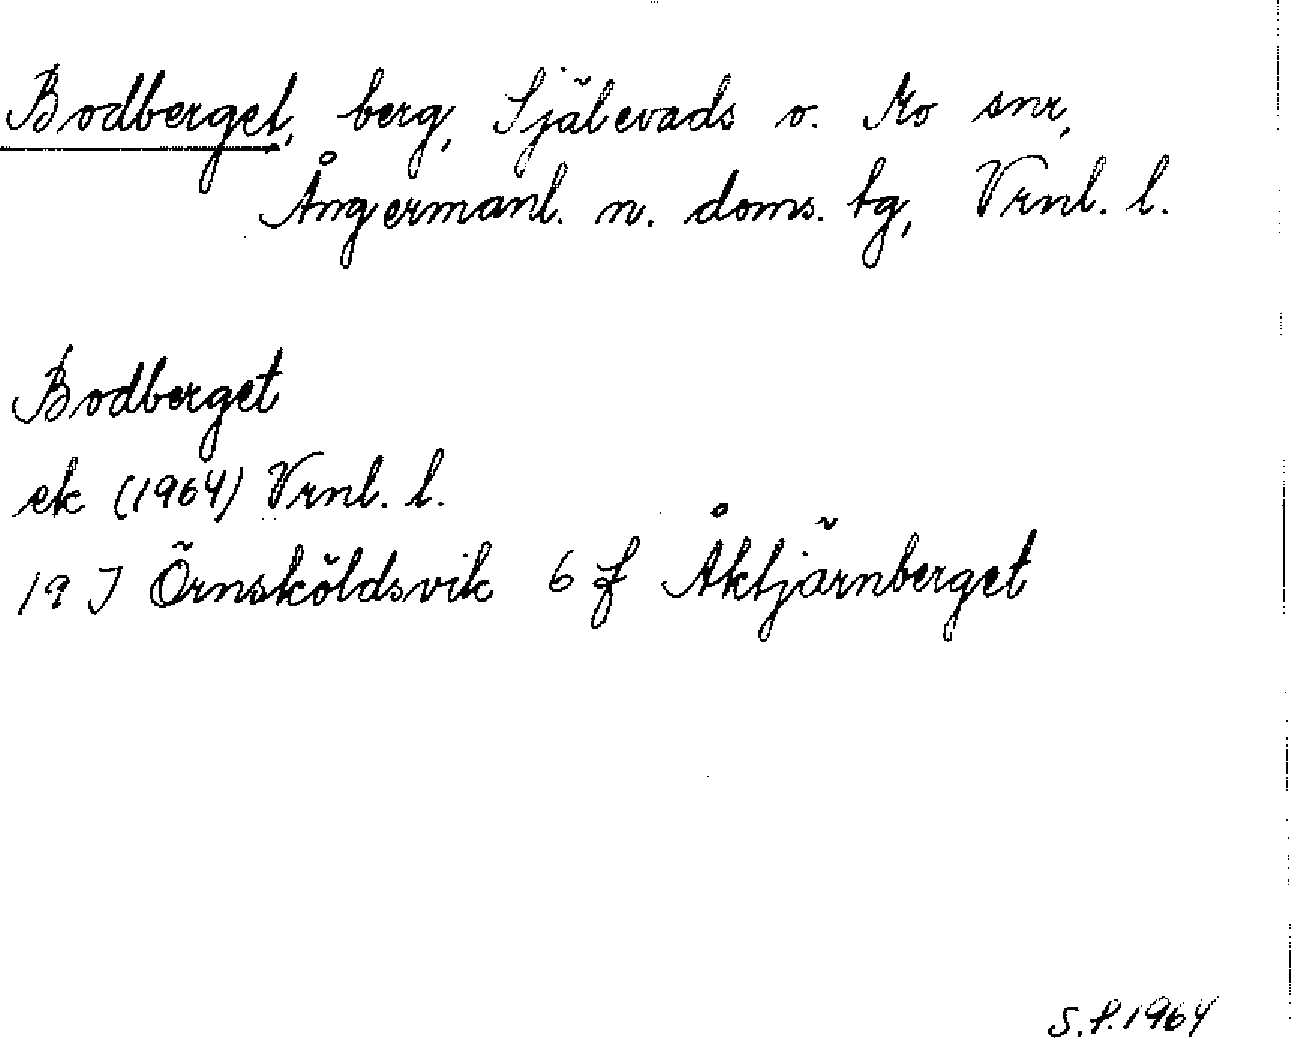 Bodberget, berg, Själevads o. Mo snr,
Ångermanl. n. doms. tg, Vrnl. l.
Bodberget
ek (1964) Vrnl. l.
19 J Örnsköldsvik 6 f Åktjärnberget
S.P.1964